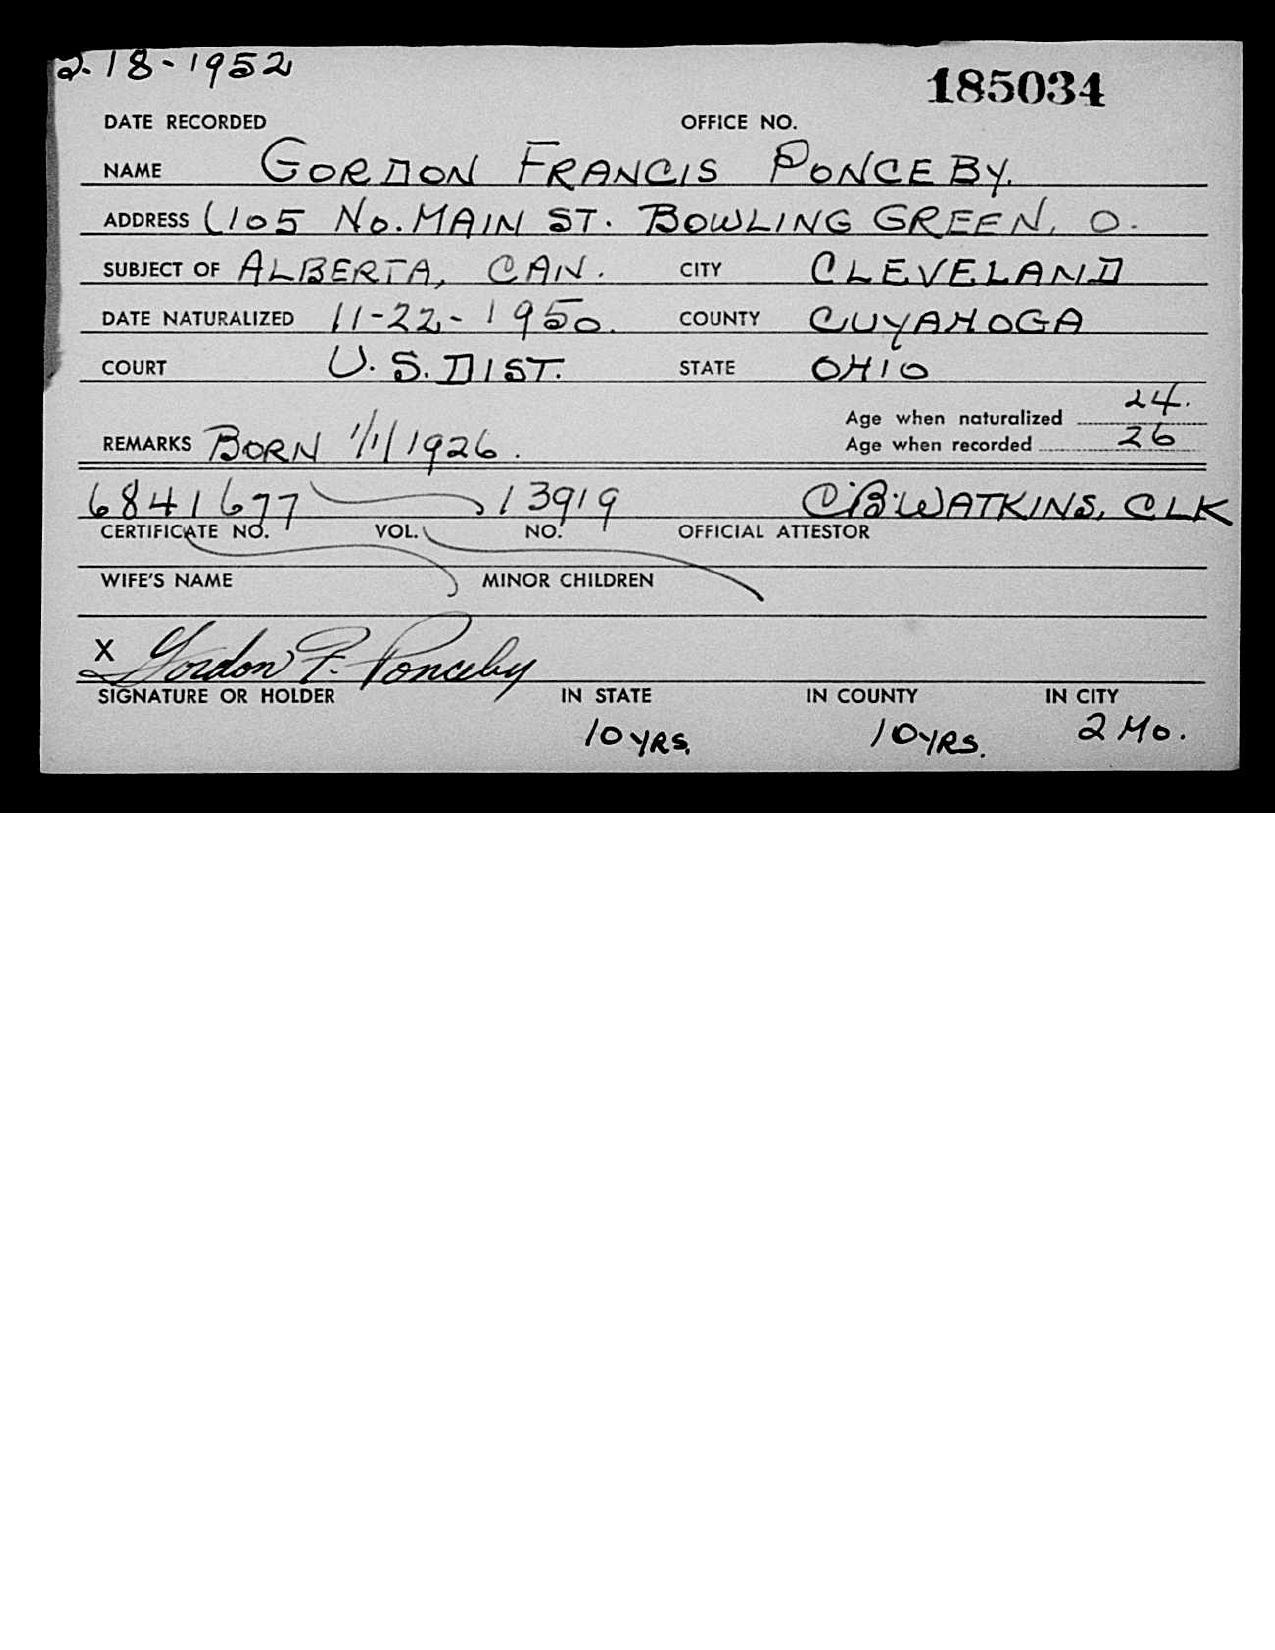 2-18-1952
185034
DATE RECORDED OFFICE NO.
NAME GORDON FRANCIS PONCEBY.
ADDRESS (105 No. MAIN ST. BOWLING GREEN, O.
SUBJECT OF ALBERTA, CAN. CITY CLEVELAND
DATE NATURALIZED 11-22-1950. COUNTY CUYAHOGA
COURT U.S. DIST. STATE OHIO
Age when naturalized 24.
REMARKS BORN 1/1/1926. Age when recorded 26
6841677 13919 C.B. WATKINS, CLK
CERTIFICATE NO. VOL. NO. OFFICIAL ATTESTOR
WIFE'S NAME MINOR CHILDREN
X Gordon F. Ponceby
SIGNATURE OR HOLDER IN STATE IN COUNTY IN CITY
10 YRS. 10 YRS. 2 Mo.